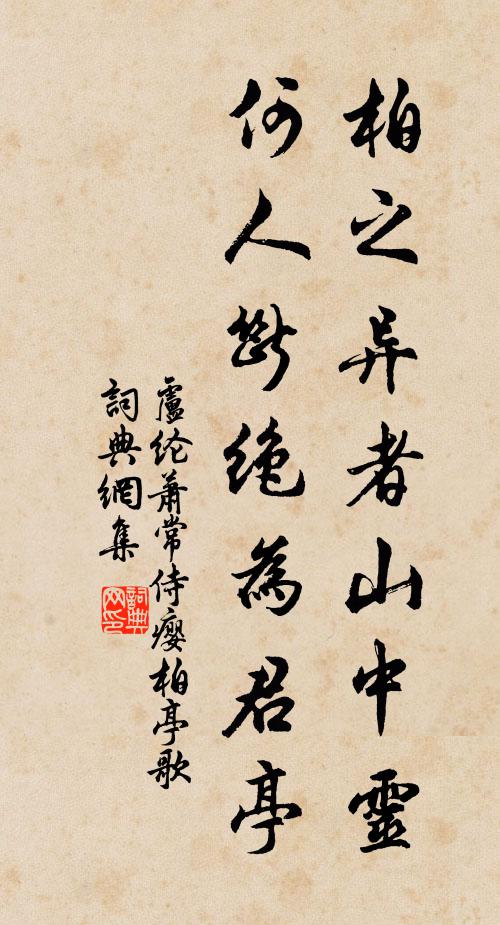 柏之异者山中靈
何人斷絶為君亭
盧纶蕭常侍癭柏亭歌
詞典網集
詞典
网印